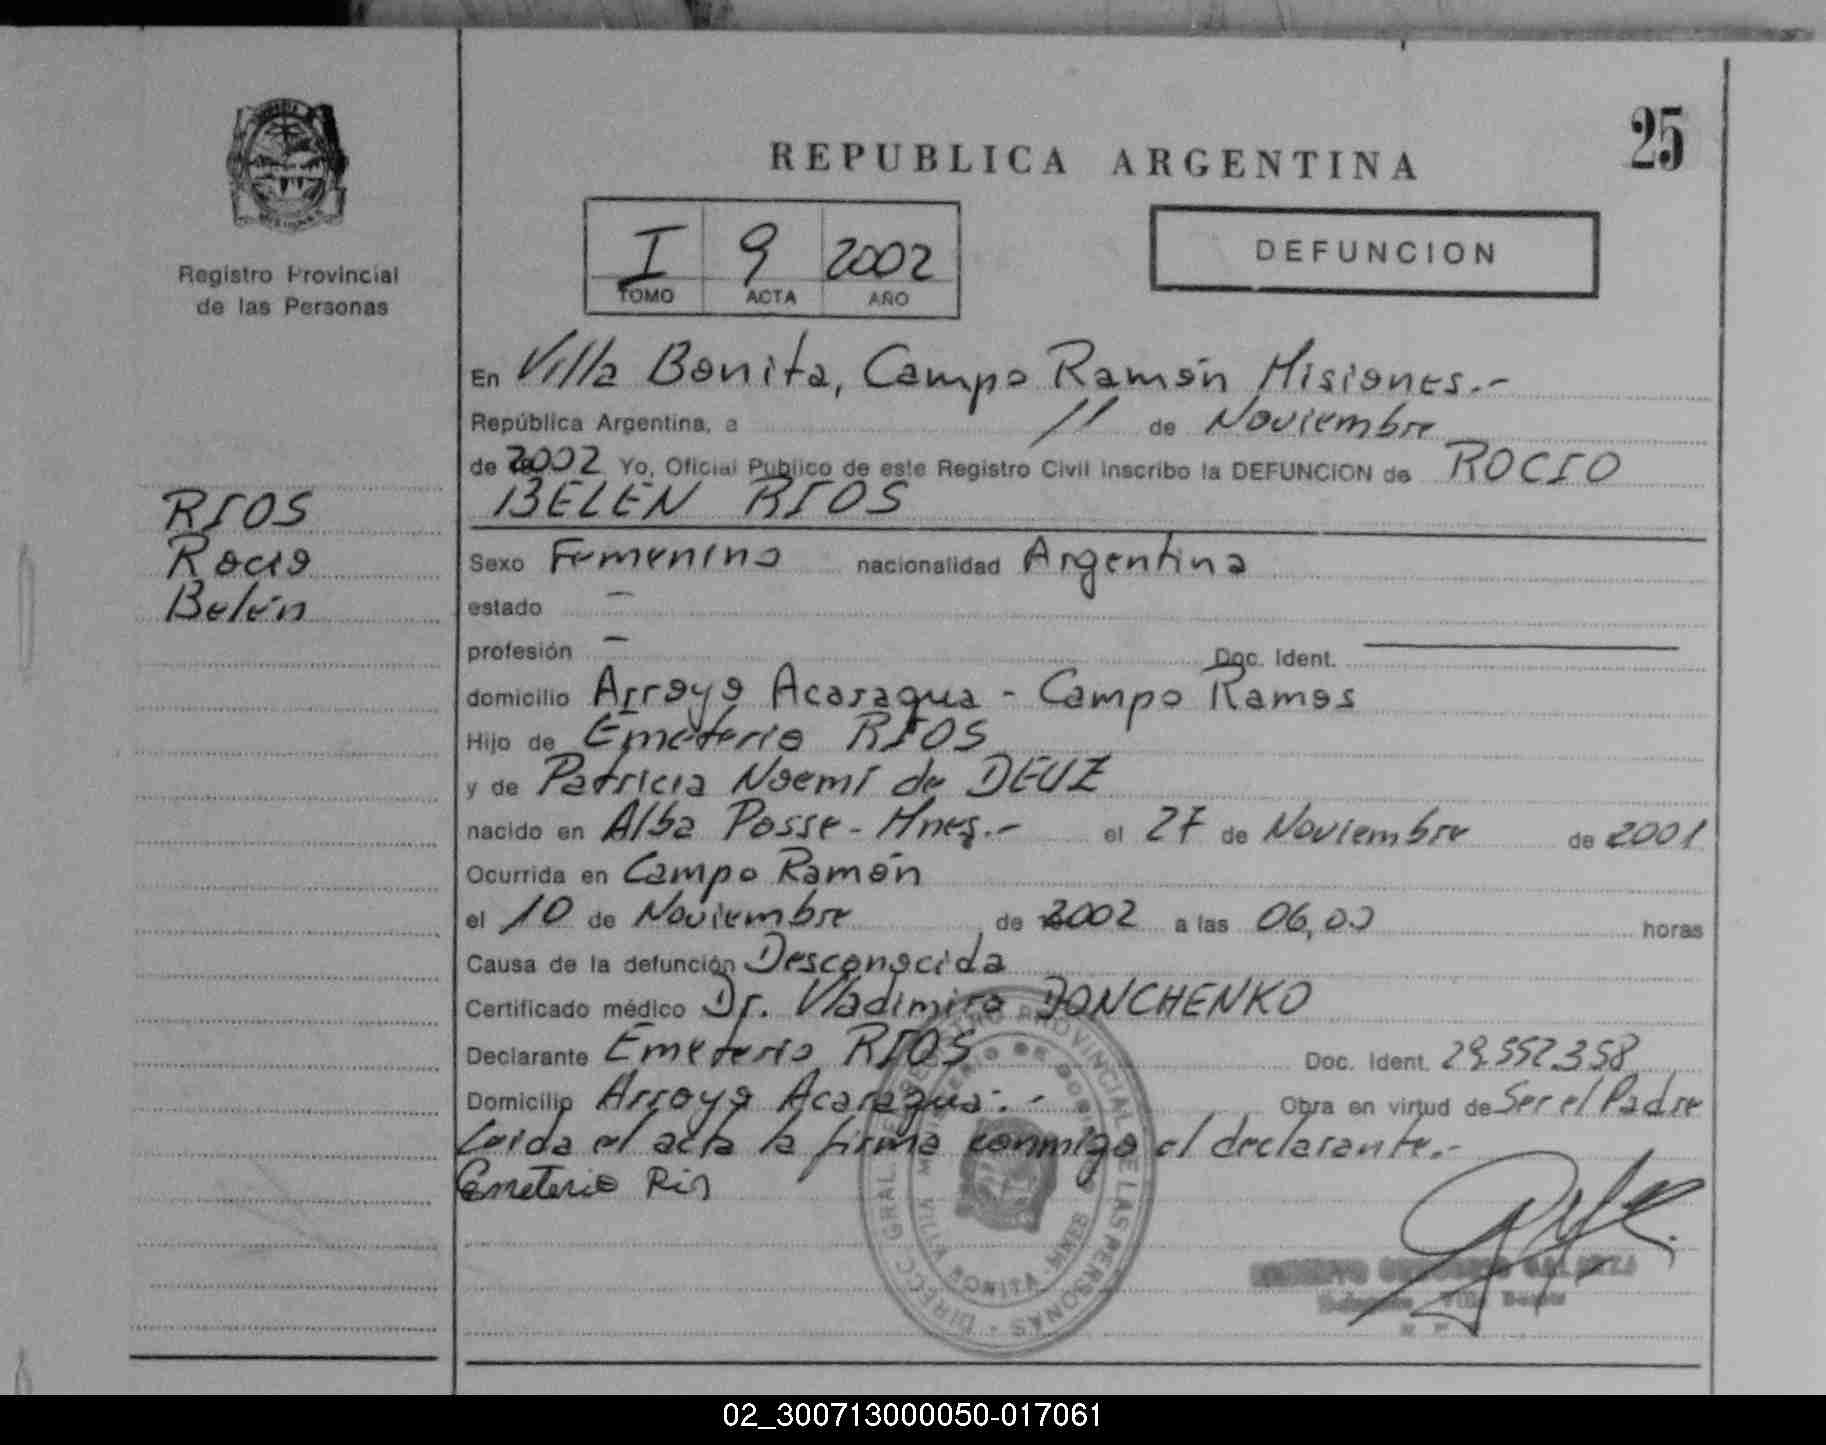 25
REPUBLICA ARGENTINA
Registro Provincial
de las Personas
I 9 2002
TOMO ACTA AÑO
DEFUNCION
RIOS
Rocio
Belén
En Villa Bonita, Campo Ramón Misiones.-
República Argentina, a 11 de Noviembre
de 2002 Yo, Oficial Publico de este Registro Civil inscribo la DEFUNCION de ROCIO
BELEN RIOS
Sexo Femenino nacionalidad Argentina
estado -
profesión - Doc. Ident.
domicilio Arroyo Acaragua - Campo Ramos
Hijo de Emeterio RIOS
y de Patricia Noemí de DEUZ
nacido en Alba Posse - Mnes.- el 27 de Noviembre de 2001
Ocurrida en Campo Ramón
el 10 de Noviembre de 2002 a las 06,00 horas
Causa de la defunción Desconocida
Certificado médico Dr. Vladimiro DONCHENKO
Declarante Emeterio RIOS Doc. Ident. 29.552.358
Domicilio Arroyo Acaragua.- Obra en virtud de Ser el Padre
Leida el acta la firma conmigo el declarante.-
Emeterio Rios
DIRECC GRAL DEL REGISTRO PROVINCIAL DE LAS PERSONAS -
MINISTERIO DE GOBIERNO
VILLA BONITA - MNES
Villa Bonita
02_300713000050-017061